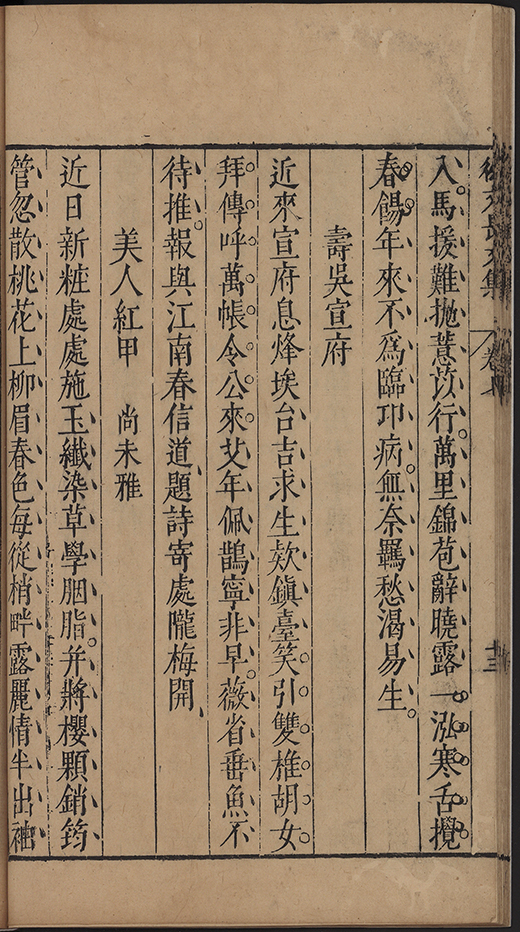 入馬援難抛薏苡行萬里錦苞辭曉露一泓寒舌攪
春餳年來不爲臨卭病無奈羈愁渴易生
壽吳宣府
近來宣府息烽埃台吉求生欵鎮臺笑引雙椎胡女
拜傳呼萬帳令公來艾年佩鵲寧非早薇省垂魚不
待推報與江南春信道題詩寄處隴梅開
美人紅甲 尚未雅
近日新粧處處施玉纖染草學胭脂并將櫻顆銷筠
管忽散桃花上柳眉春色每從梢畔露麗情半出袖